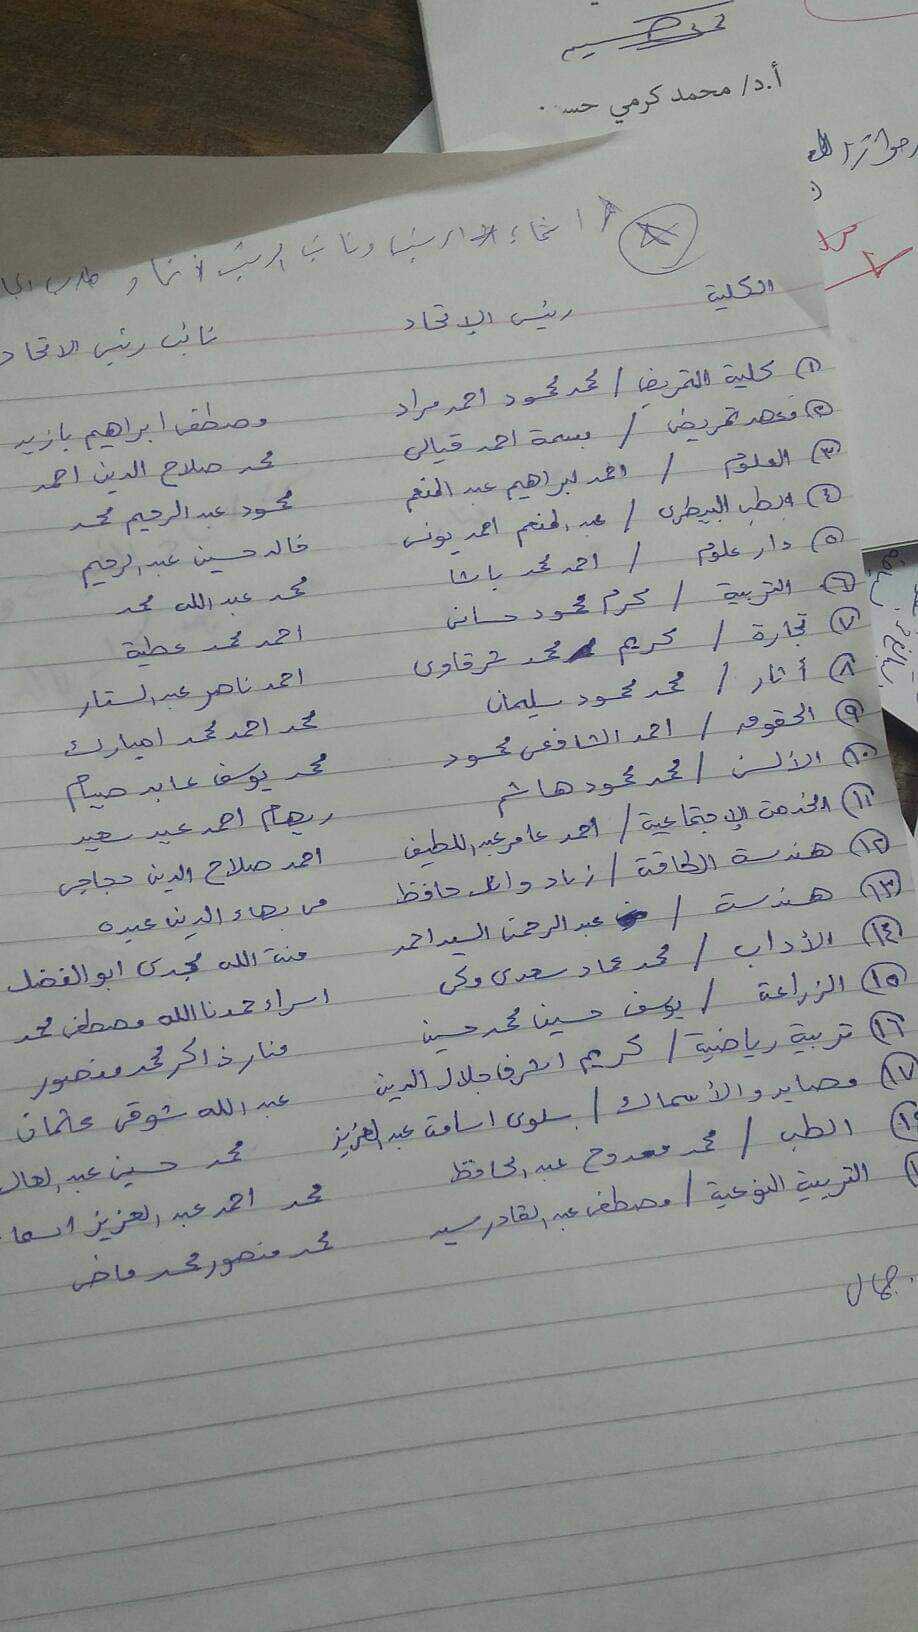 أ.د/ محمد كرمي
اسماء الرئيس ونائب الرئيس
الكلية رئيس الاتحاد نائب رئيس الاتحاد
١ كلية التمريض / محمد محمود احمد مراد مصطفى ابراهيم بازيد
٢ معهد تمريض / بسمة احمد قيالى محمد صلاح الدين احمد
٣ العلوم / احمد ابراهيم عبد المنعم محمود عبد الرحيم محمد
٤ الطب البيطرى / عبد المنعم احمد يونس خالد حسين عبد الرحيم
٥ دار علوم / احمد محمد باشا محمد عبد الله محمد
٦ التربية / محرم محمود حسانى احمد محمد عطية
٧ تجارة / كريم محمد شرقاوى احمد ناصر عبد الستار
٨ أثار / محمد محمود سليمان محمد احمد محمد امبارك
٩ الحقوق / احمد الشافعى محمود محمد يوسف عابد صيام
١٠ الألسن / محمد محمود هاشم ريهام احمد عيد سعيد
١١ الخدمة الإجتماعية / احمد عامر عبد اللطيف احمد صلاح الدين حجاجى
١٢ هندسة الطاقة / زياد وائل حافظ مى بهاء الدين عبده
١٣ هندسة / عبد الرحمن السيد احمد منة الله مجدى ابو الفضل
١٤ الأداب / محمد عماد سعدى وكى اسراء حمدنا الله مصطفى محمد
١٥ الزراعة / يوسف حسين محمد حسين منار ذاكر محمد منصور
١٦ تربية رياضية / كريم اشرف جلال الدين عبد الله شوقى عثمان
١٧ مصايد والأسماك / سلوى اسامة عبد العزيز محمد حسين عبد العال
الطب / محمد ممدوح عبد الحافظ محمد احمد عبد العزيز
التربية النوعية / مصطفى عبد القادر سيد محمد منصور محمد ماضى
جمال